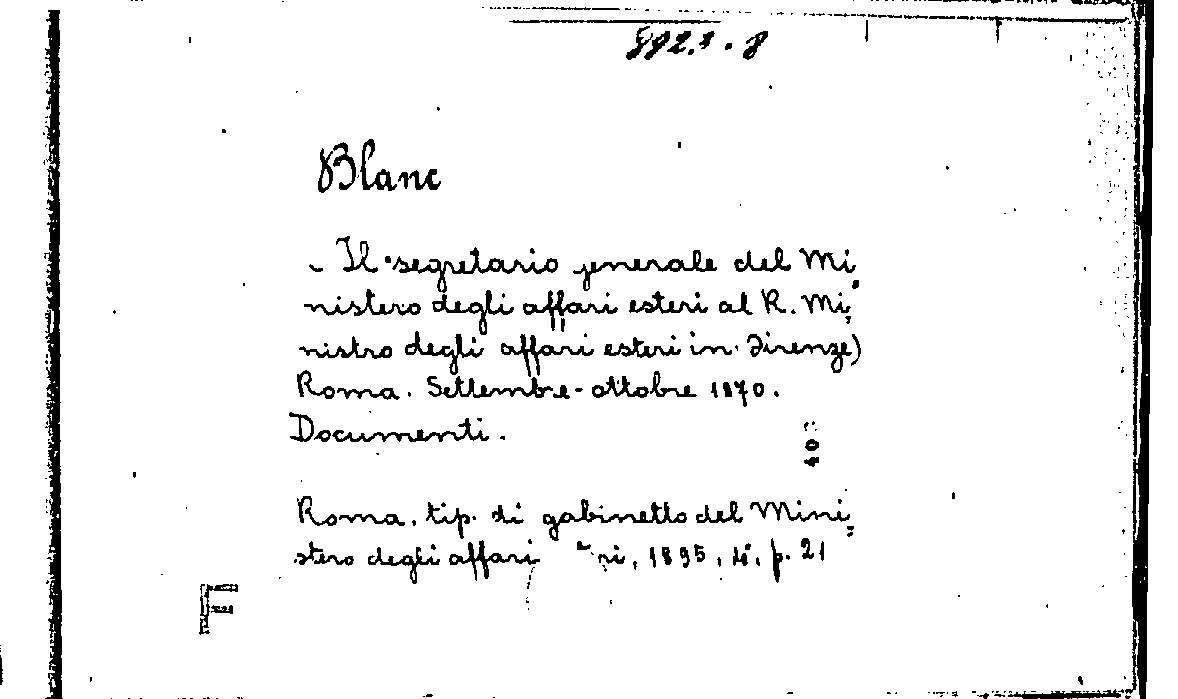 892.1.8
Blanc
- Il segretario generale del Mi
nistero degli affari esteri al R. Mi=
nistro degli affari esteri in Firenze)
Roma. Settembre-ottobre 1870.
Documenti.
40
Roma, tip. di gabinetto del Mini=
stero degli affari ri, 1895, 4°, p. 21
F